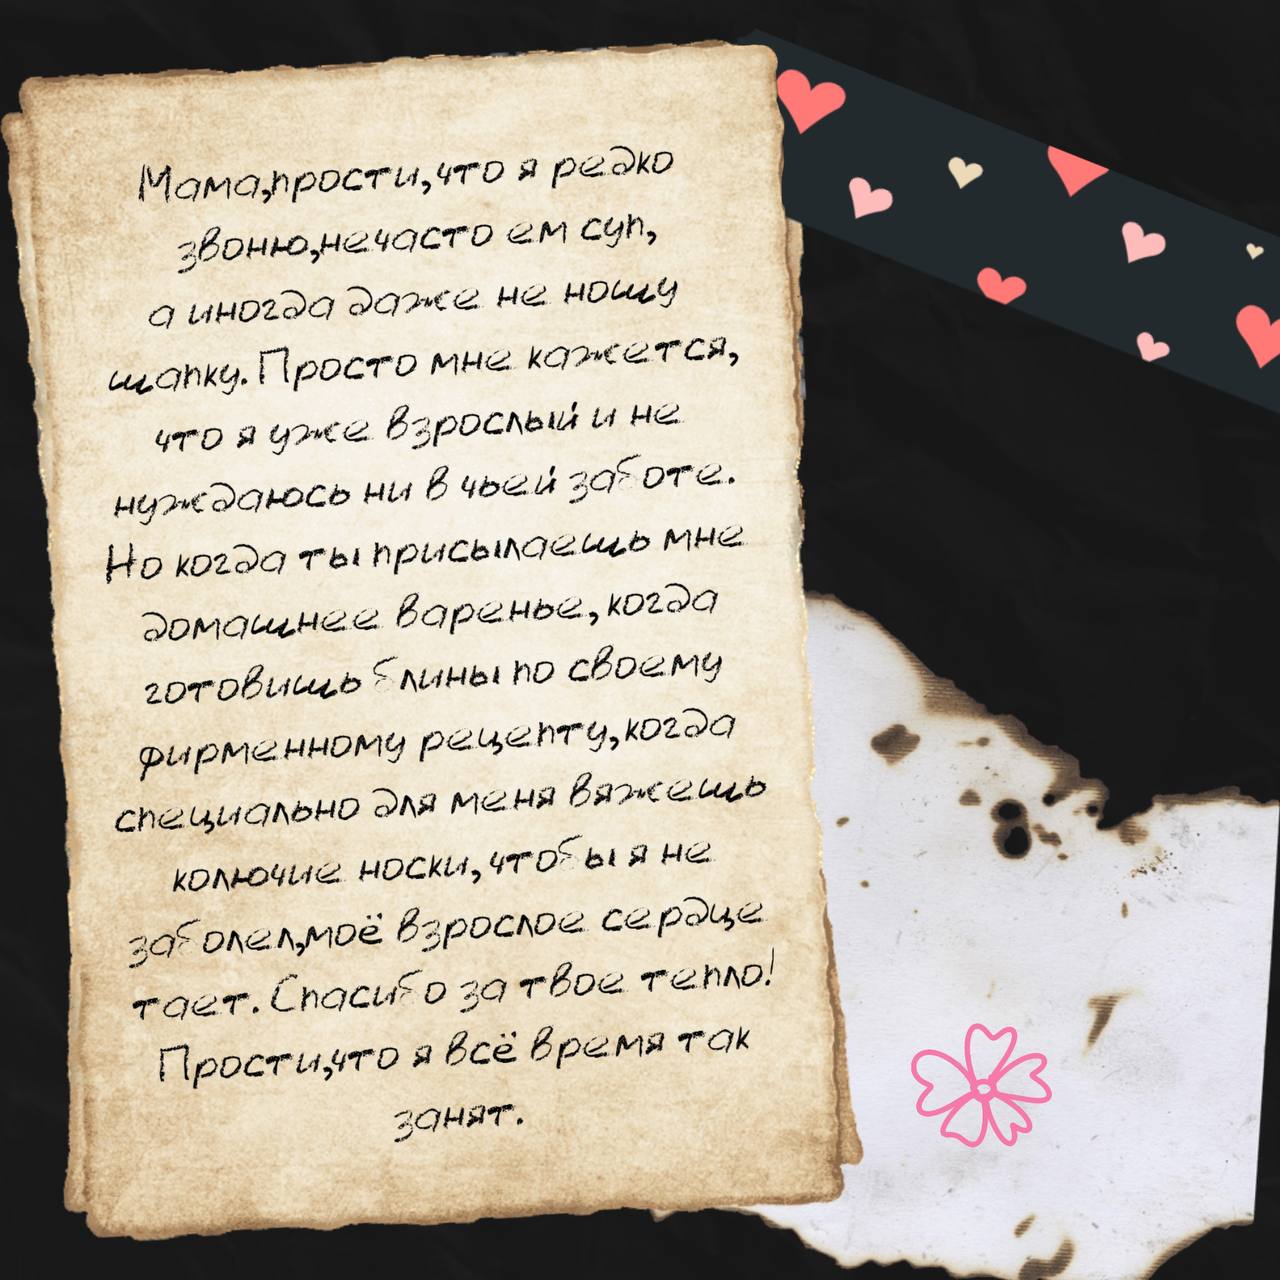 Мама,прости,что я редко
звоню,нечасто ем суп,
а иногда даже не ношу
шапку. Просто мне кажется,
что я уже взрослый и не
нуждаюсь ни в чьей заботе.
Но когда ты присылаешь мне
домашнее варенье, когда
готовишь блины по своему
фирменному рецепту, когда
специально для меня вяжешь
колючие носки, чтобы я не
заболел,моё взрослое сердце
тает. Спасибо за твое тепло!
Прости,что я всё время так
занят.